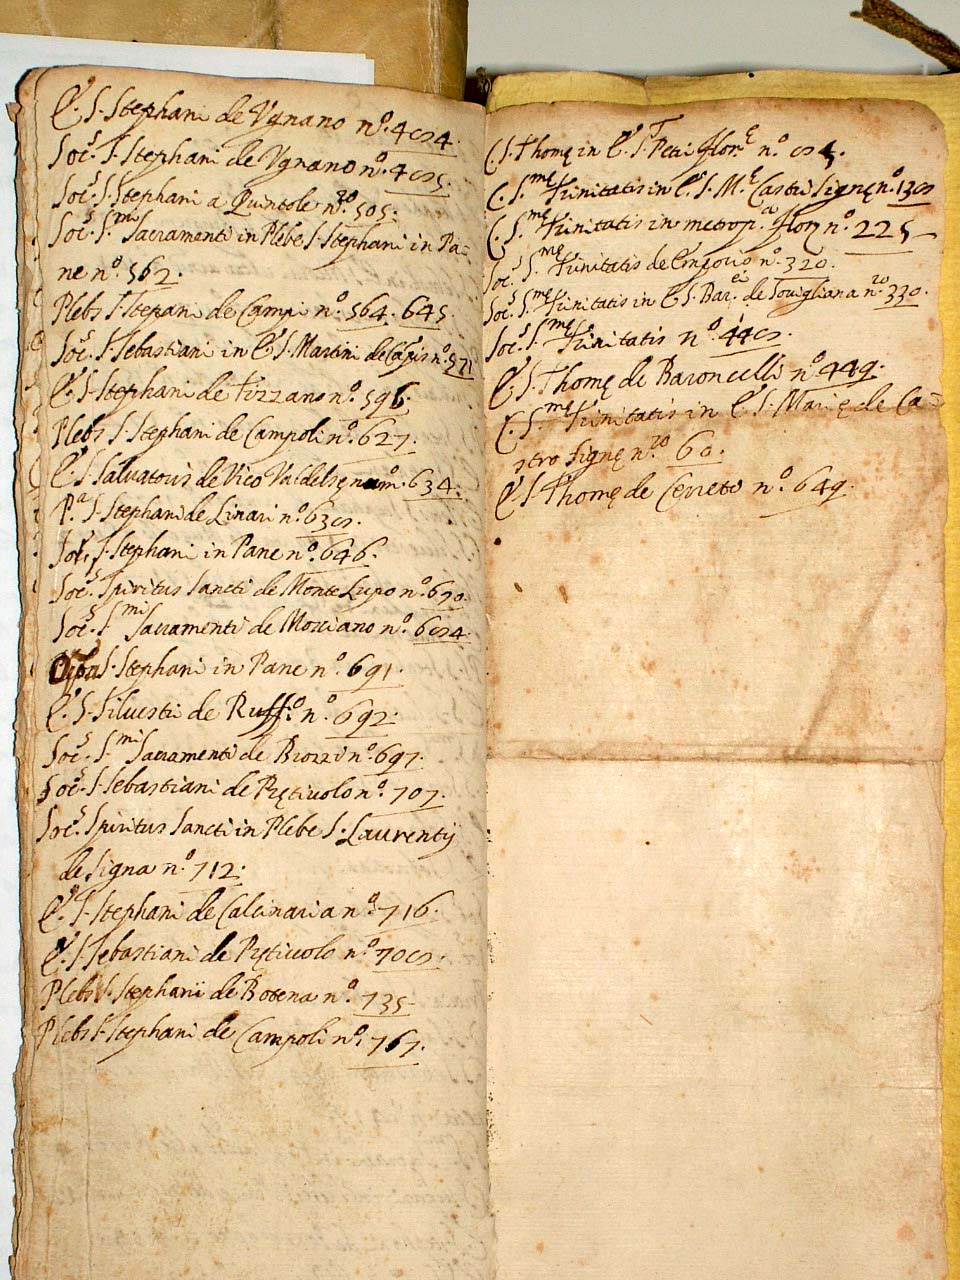 Ec.ª S. Stephani de Vgnano n.º 484.
Soc.s S. Stephani de Vgnano n.º 485.
Soc.s S. Stephani a Quintole n.ro 505.
Soc.s S.mi Sacramenti in Plebe S. Stephani in Pa-
ne n.º 562.
Plebs S. Stepani de Campi n.º 564. 645.
Soc.s S. Sebastiani in E.ª S. Martini de n.º 571
E.ª S. Stephani de Tizzano n.º 596.
Plebs S. Stephani de Campoli n.º 627.
E.ª S. Salvatoris de Vico Valdelsę num.º 634.
P.a S. Stephani de Linari n.º 638.
Soc.s S. Stephani in Pane n.º 646.
Soc.s Spiritus Sancti de Monte Lupo n.º 670.
Soc.s S.mi Sacramenti de Mosciano n.º 684.
Opa S. Stephani in Pane n.º 691.
E.ª S. Silvestri de Ruff.º n.º 692.
Soc.s S.mi Sacramenti de Brozzi n.º 697.
Soc.s S. Sebastiani de Pęticvolo n.º 707.
Soc.s Spiritus Sancti in Plebe S. Laurentij
de Signa n.º 712.
E.ª S. Stephani de Calcinaria n.º 716.
E.ª S. Sebastiani de Pęticuolo n.º 708.
Plebs S. Stephani de Botena n.º 735
Plebs S. Stephani de Campoli n.º 767.
C. S. Thomę in E.ª S. Petri Flor.e n.º 85.
C. S.mę Trinitatis in E.ª S. M.ę Castri Signę n.º 138
C. S.mę Trinitatis in metrop.a Flor. n.º 225
Soc.s S.mę Trinitatis de Emporio n.º 320.
Soc.s S.mę Trinitatis in E.ª S. Bar.ei de Sovigliana n.ro 330.
Soc.s S.mę Trinitatis n.º 448.
E.ª S. Thomę de Baroncelli n.º 449.
C. S.mę Trinitatis in E.ª S. Marię de Ca-
stro Signę n.ro 60.
E.ª S. Thomę de Cerreto n.º 649.